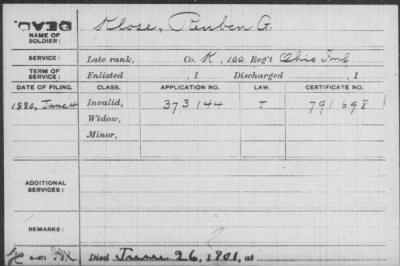 DEAD.
NAME OF SOLDIER: Klose, Reuben G.
SERVICE: Late rank, Co. K, 100 Reg't Ohio Inf
TERM OF SERVICE: Enlisted , 1 Discharged , 1
DATE OF FILING. CLASS. APPLICATION NO. LAW. CERTIFICATE NO.
1880, June 4 Invalid, 373144 J 791698
Widow,
Minor,
ADDITIONAL SERVICES:
REMARKS:
Died June 26, 1891, at